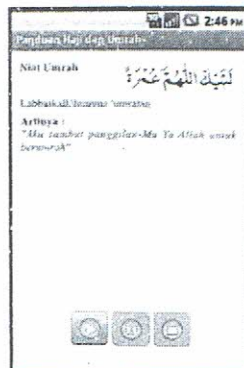 2:46 PM
Panduan Haji dan Umrah
Niat Umrah
لَبَّيْكَ اللّٰهُمَّ عُمْرَةً
Labbaikall
Artinya :
"Aku sambut panggilan-Mu Ya Allah untuk
berumrah"